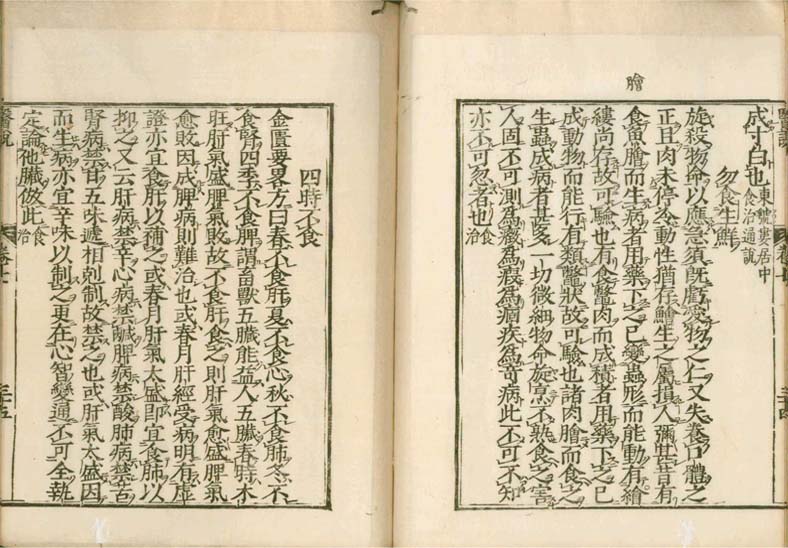 膾
醫說 卷七 三十四
成寸白也 東虢婁居中
食治通說
勿食生鮮
旋殺物命以應急須既虧愛物之仁又失養口體之
正且肉未停冷動性猶存鱠生之屬損人彌甚昔有
食魚膾而生病者用藥下之已變蟲形而能動有繪
縷尚存故可驗也有食鱉肉而成積者用藥下之已
成動物而能行有類鱉狀故可驗也諸肉膾而食之
生蟲成病者甚多一切微細物命旋烹不熟食之害
人固不可測為癥為瘕為痼疾為奇病此不可不知
亦不可忽者也 食治
四時不食
金匱要畧方曰春不食肝夏不食心秋不食肺冬不
食腎四季不食脾謂畜獸五臟能益人五臟春時木
旺肝氣盛脾氣敗故不食肝食之則肝氣愈盛脾氣
愈敗因成脾病則難治也或春月肝經受病明有虛
證亦宜食肝以補之或春月肝氣太盛即宜食肺以
抑之又云肝病禁辛心病禁鹹脾病禁酸肺病禁苦
腎病禁甘五味遞相剋制故禁之也或肝氣太盛因
而生病亦宜辛味以制之更在心智變通不可全執
定論他臟倣此 食治
醫說 卷七 三十五